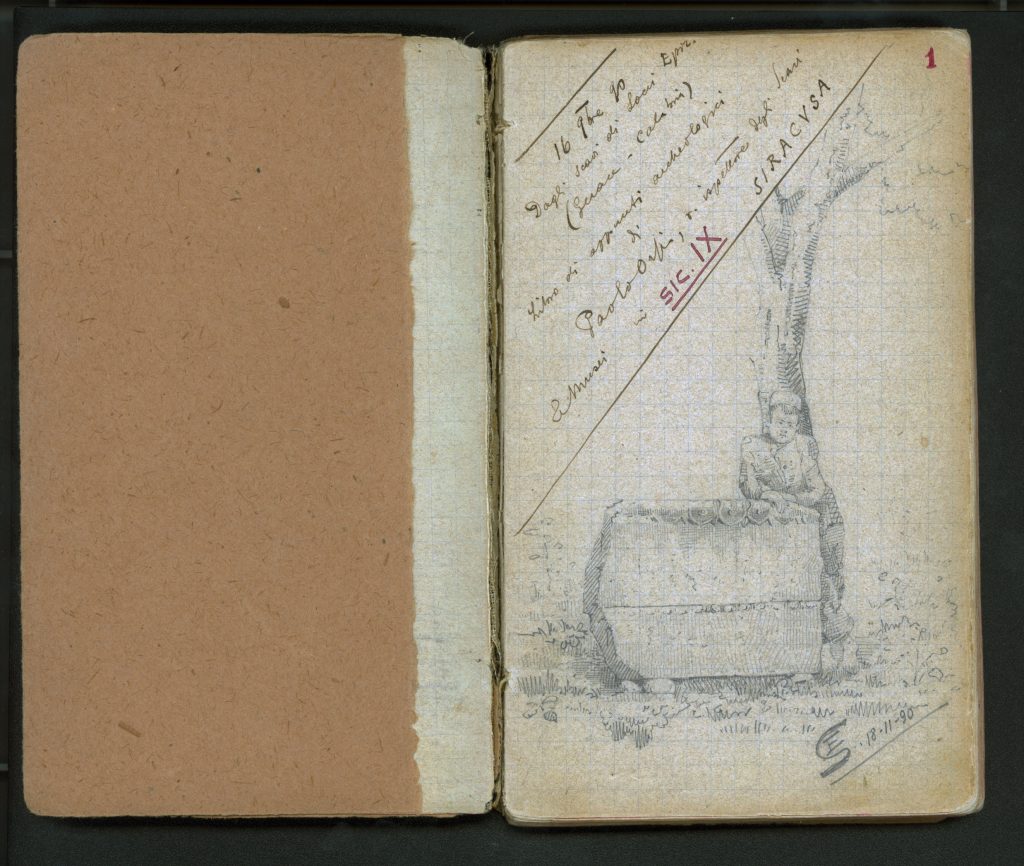 1
16 9bre 90
Dagli scavi di Locri Epiz.
(Gerace - Calabria)
Libro di appunti archeologici
di
Paolo Orsi, r. ispettore degli Scavi
e Musei in SIRACVSA
SIC. IX
18-11-90